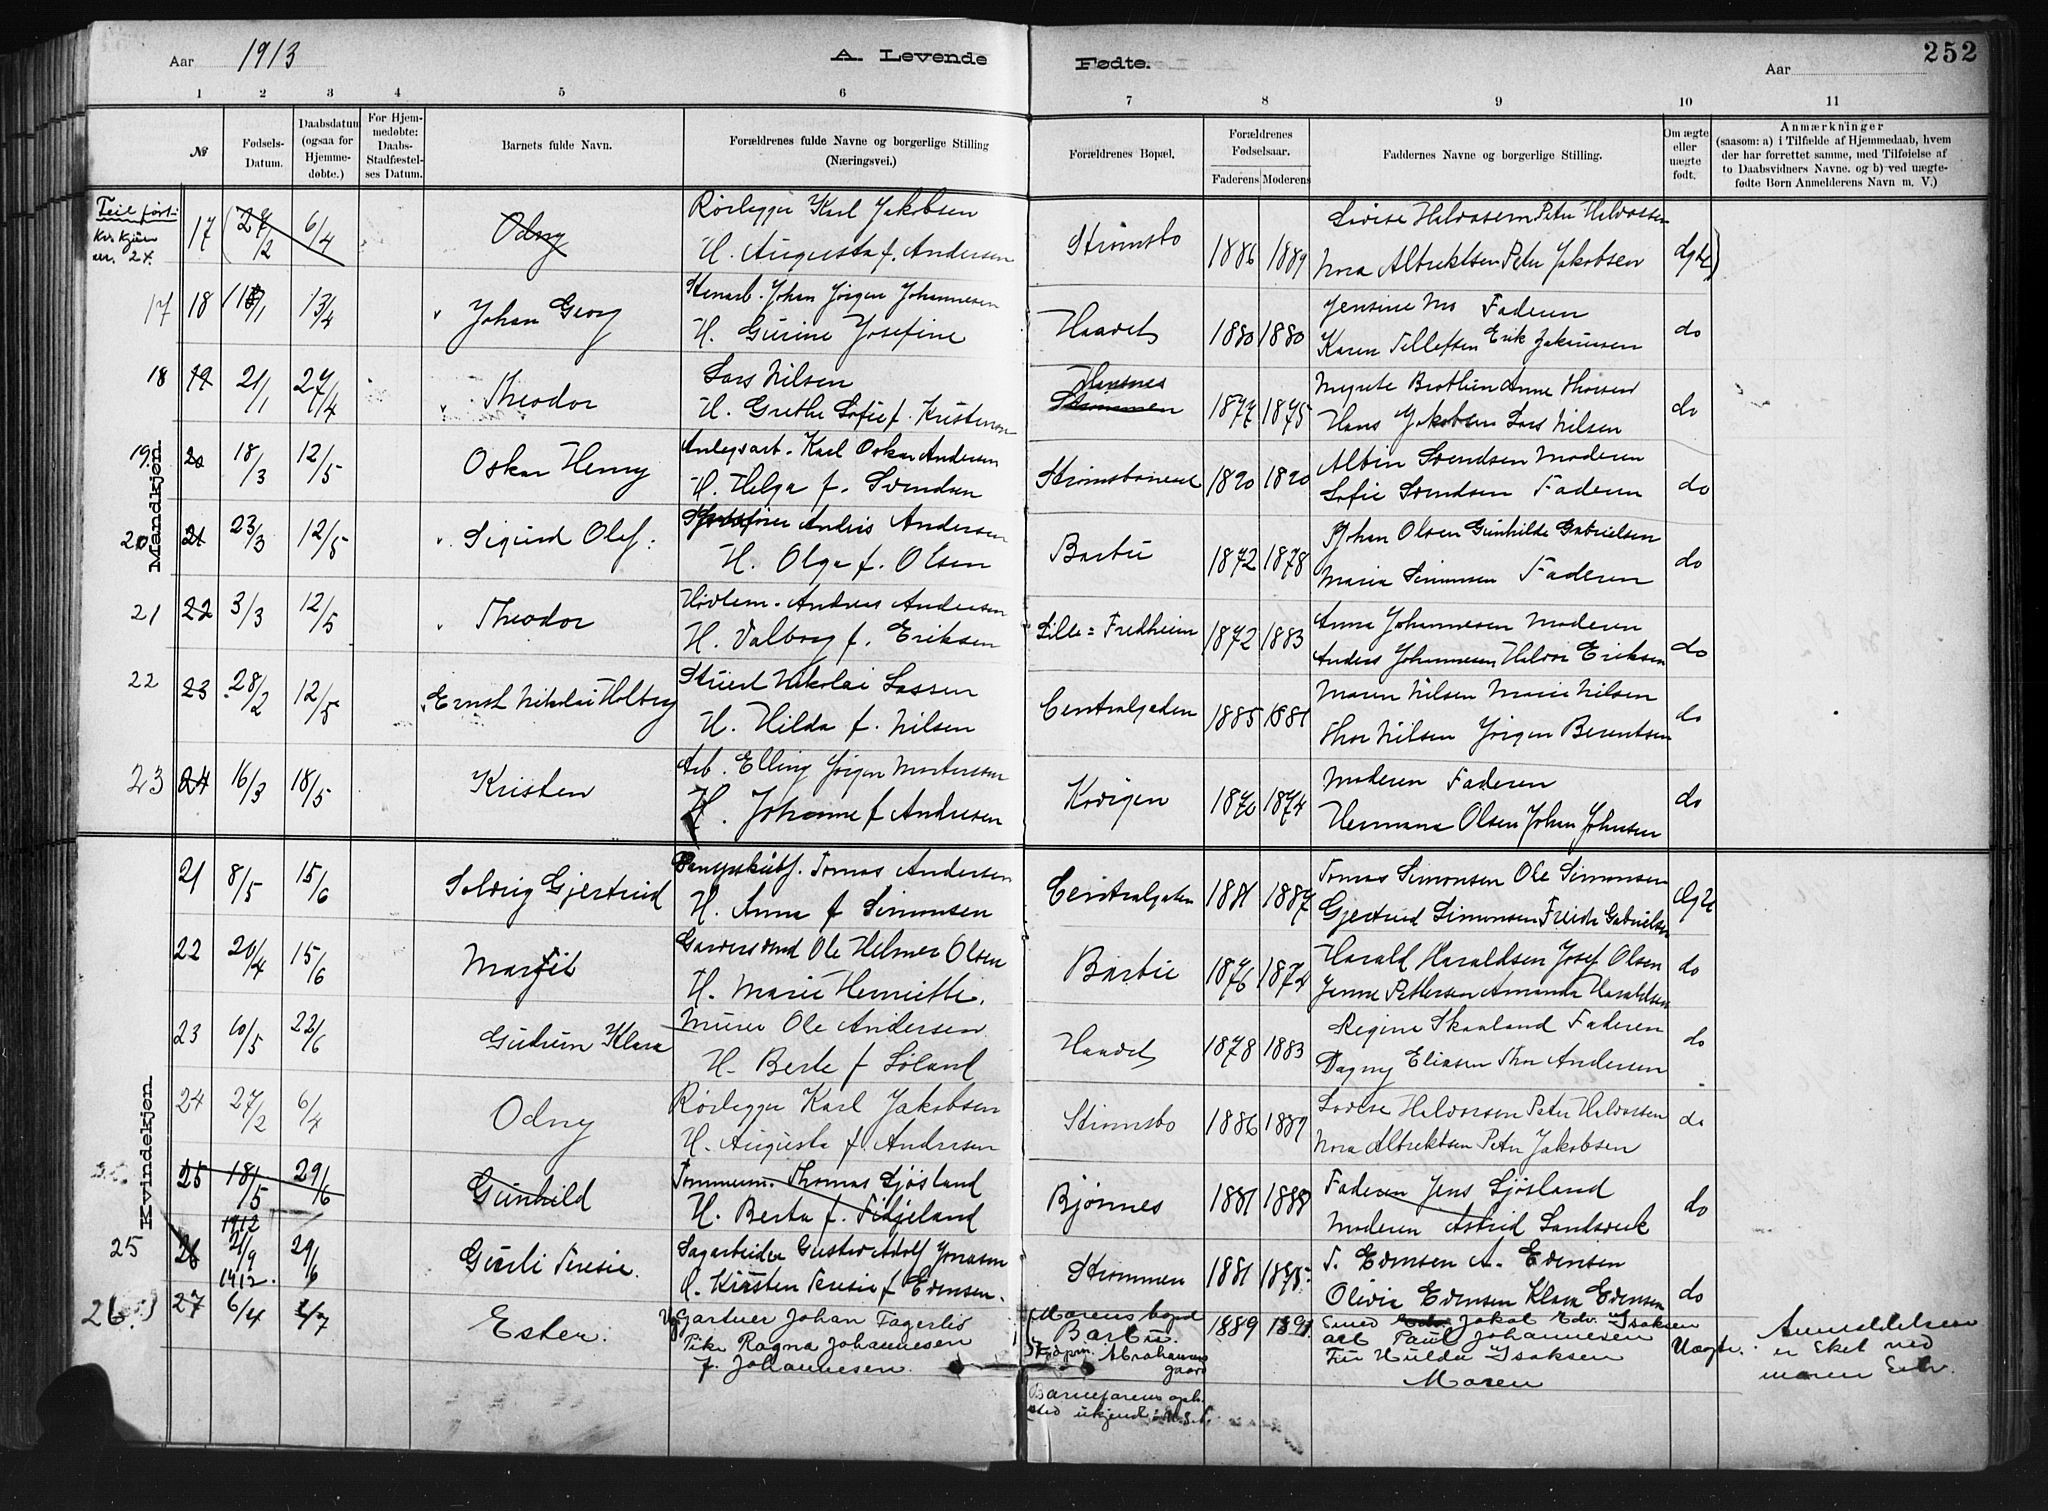 Aar 1913 A. Levende Fødte. Aar 252
1 2 3 4 5 6 7 8 9 10 11
№ Fødsels-Datum. Daabsdatum (ogsaa for Hjemmedøbte.) For Hjemmedøbte: Daabs-Stadfæstelses Datum. Barnets fulde Navn. Forældrenes fulde Navne og borgerlige Stilling (Næringsvei.) Forældrenes Bopæl. Forældrenes Fødselsaar. Faderens Moderens Faddernes Navne og borgerlige Stilling. Om ægte eller uægte født. Anmærkninger (saasom: a) i Tilfælde af Hjemmedaab, hvem der har forrettet samme, med Tilføielse af to Daabsvidners Navne. og b) ved uægtefødte Børn Anmelderens Navn m. V.)
Mandkjøn.
17 27/2 6/4 Odny Rørlegger Karl Jakobsen Strømsbo 1886 1889 Lovise Halvorsen Peter Halvorsen Ægte
H. Augusta f. Andersen Nora Albrektsen Peter Jakobsen
17 18 13/4 Johan Georg Stenarb. Johan Jørgen Johannesen Haavet 1880 1880 Jensine Mo Faderen do
H. Gurine Josefine Karen Tellefsen Erik Jakobsen
18 19 21/1 27/4 Theodor Lars Nilsen Strømmen 1877 1875 Anne Thorsen do
H. Grethe Sofie f. Kristensen Hans Jakobsen Lars Nilsen
19 20 18/3 12/5 Oskar Henry Anlegsarb. Karl Oskar Andersen 1890 1890 Albin Svendsen Moderen do
H. Helga f. Svendsen Sofie Svendsen Faderen
20 21 23/3 12/5 Sigurd Olaf. Andersen Barbu 1872 1878 Johan Olsen Gunhilde Gabrielsen do
H. Olga f. Olsen Maria Simonsen Faderen
21 22 3/3 12/5 Theodor Andreas Andersen Lille = Fredheim 1872 1883 Anna Johannesen Moderen do
H. Valborg f. Eriksen Anders Johannesen Halvor Eriksen
22 23 28/2 12/5 Ernst Nikolai Holberg Stuert Nikolai Lassen Centralgaden 1885 1881 Maren Nilsen Marie Nilsen do
H. Hilda f. Nilsen Thor Nilsen Jørgen Berentsen
23 24 16/3 18/5 Kristen Arb. Elling Jørgen Mortensen Krøigen 1870 1874 Moderen Faderen do
H. Johanne f Andresen Hermana Olsen Johan Johnsen
Kvindekjøn.
21 8/5 15/6 Solveig Gjertrud Tomas Andersen Centralgaden 1881 1887 Tomas Simonsen Ole Simonsen Ægte
H. Anna f Simonsen Gjertrud Simonsen Frida Gabrielsen
22 20/4 15/6 Margit Garversvend Ole Helmer Olsen Barbu 1876 1874 Harald Haraldsen Josef Olsen do
H. Marie Henriette. Jenne Pettersen Amanda Haraldsen
23 10/5 22/6 Gudrun Klara Murer Ole Andersen Haavet 1878 1883 Regine Skaaland Faderen do
H. Berte f Løland Dagny Eliasen Thor Andersen
24 27/2 6/4 Odny Rørlegger Karl Jakobsen Strømsbo 1886 1889 Lovise Halvorsen Peter Halvorsen do
H. Augusta f Andresen Nora Albrektsen Peter Jakobsen
25 18/5 29/6 Gunhild Tømmerm. Thomas Ljøsland Bjønnes 1881 1888 Faderen Jens Ljøsland do
H. Berta f. Fidjeland Moderen Astrid Landsverk
25 26 1912 21/9 29/6 Gurli Teresie. Sagarbeider Gustav Adolf Jonassen Strømmen 1881 T. Evensen A. Evensen do
H. Kirsten Teresie f Evensen. Olivia Evensen Klara Evensen
26 27 1912. 6/4 Ester. Ug Gartner Johan Fagerlio Morens bopæl Barbu. 1889 1891 Smed Jakob Edv. Isaksen Uægte. Anmeldelsen
Pike Ragna Johannesen Abrahamsens gaard arb Paul Johannesen er sket ved
f. Johannesen. Fru Hulda Isaksen moren
Moren
Barnefarens opholdssted ukjend